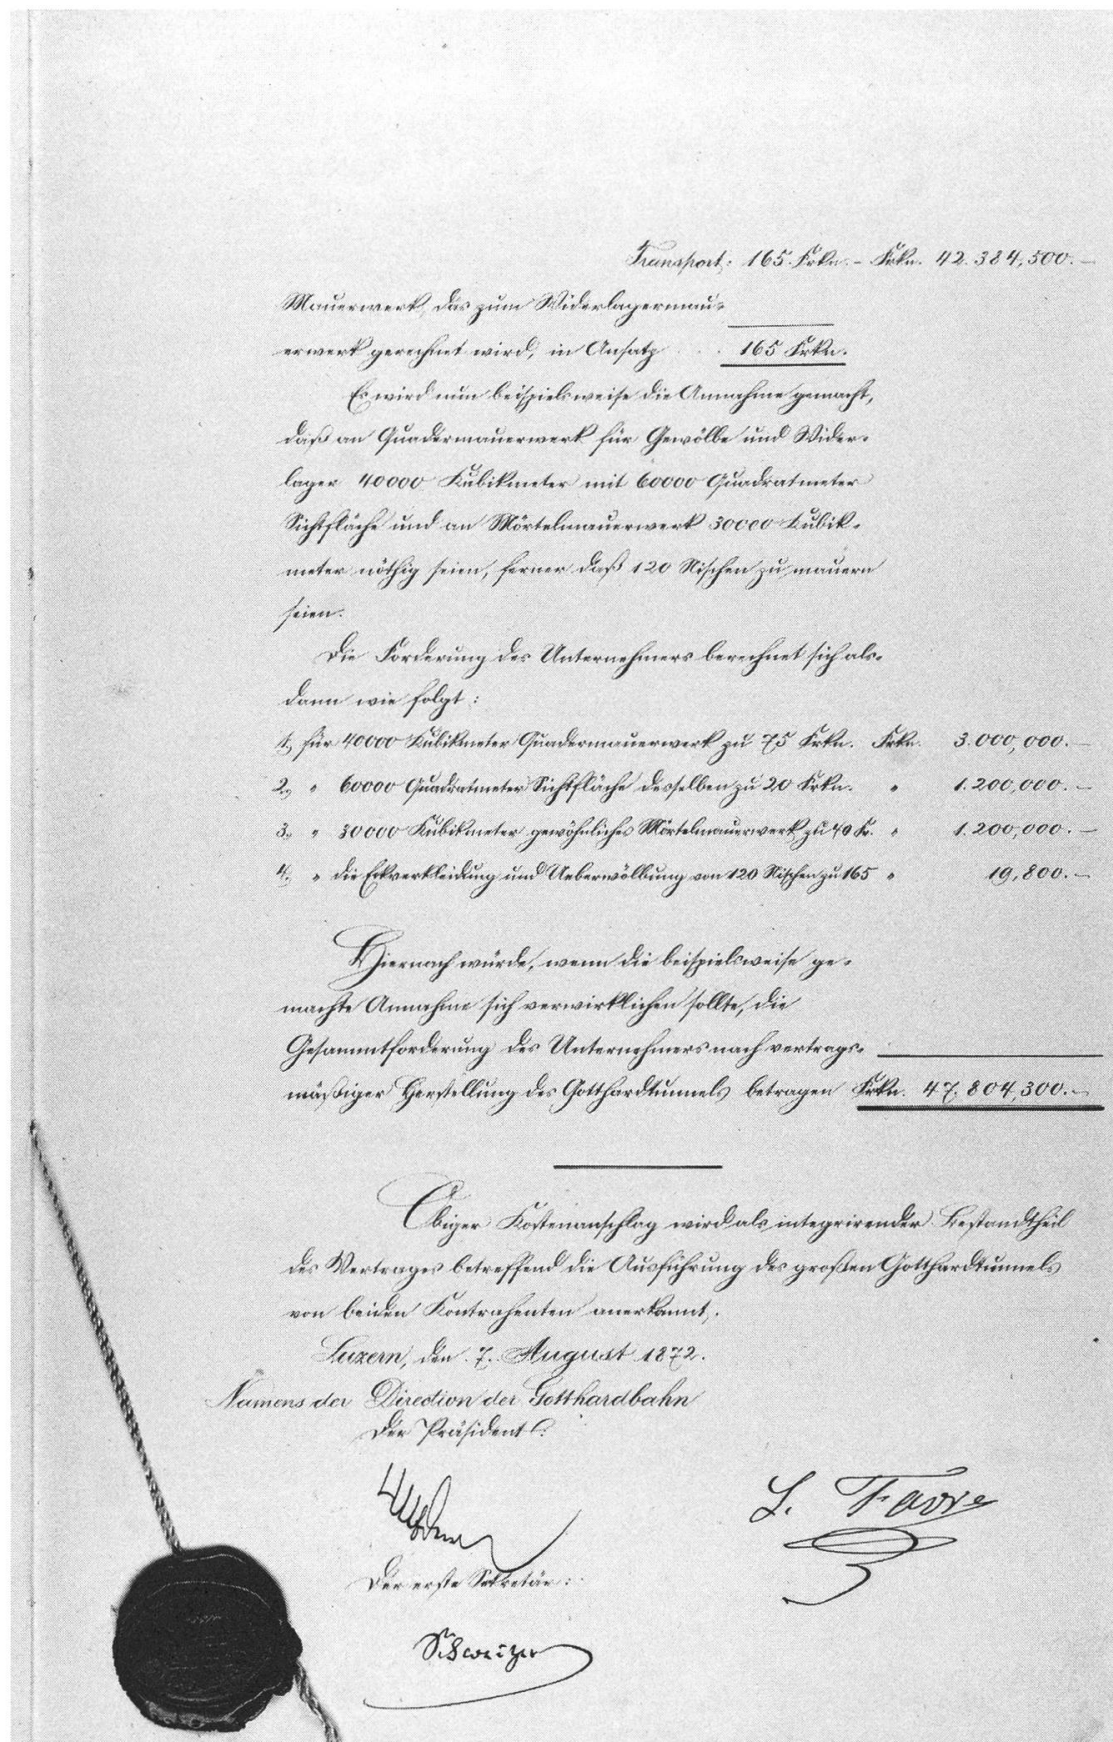 Transport: 165 Frkn. – Frkn. 42.384,500.–
Mauerwerk, das zum Widerlagermau-
erwerk gerechnet wird, in Ansatz . . 165 Frkn.
Es wird nun beispielsweise die Annahme gemacht,
daß an Quadermauerwerk für Gewölbe und Wider-
lager 40000 Kubikmeter mit 60000 Quadratmeter
Sichtfläche und an Mörtelmauerwerk 30000 Kubik-
meter nöthig seien, ferner daß 120 Nischen zu mauern
seien.
Die Forderung des Unternehmers berechnet sich als-
dann wie folgt:
1., für 40000 Kubikmeter Quadermauerwerk zu 75 Frkn. Frkn. 3.000,000.–
2., " 60000 Quadratmeter Sichtfläche desselben zu 20 Frkn. " 1.200,000.–
3., " 30000 Kubikmeter gewöhnliches Mörtelmauerwerk zu 40 Fr. " 1.200,000.–
4., " die Eckverkleidung und Ueberwölbung von 120 Nischen zu 165 " 19,800.–
Hiernach würde, wenn die beispielsweise ge-
machte Annahme sich verwirklichen sollte, die
Gesammtforderung des Unternehmers nach vertrags-
mäßiger Herstellung des Gotthardtunnels betragen Frkn. 47,804,300.–
Obiger Kostenanschlag wird als integrirender Bestandtheil
des Vertrages betreffend die Ausführung des großen Gotthardtunnels
von beiden Kontrahenten anerkannt.
Luzern, den 7. August 1872.
Namens der Direction der Gotthardbahn
Der Präsident:
L. Favre
Der erste Sekretär:
Schweizer